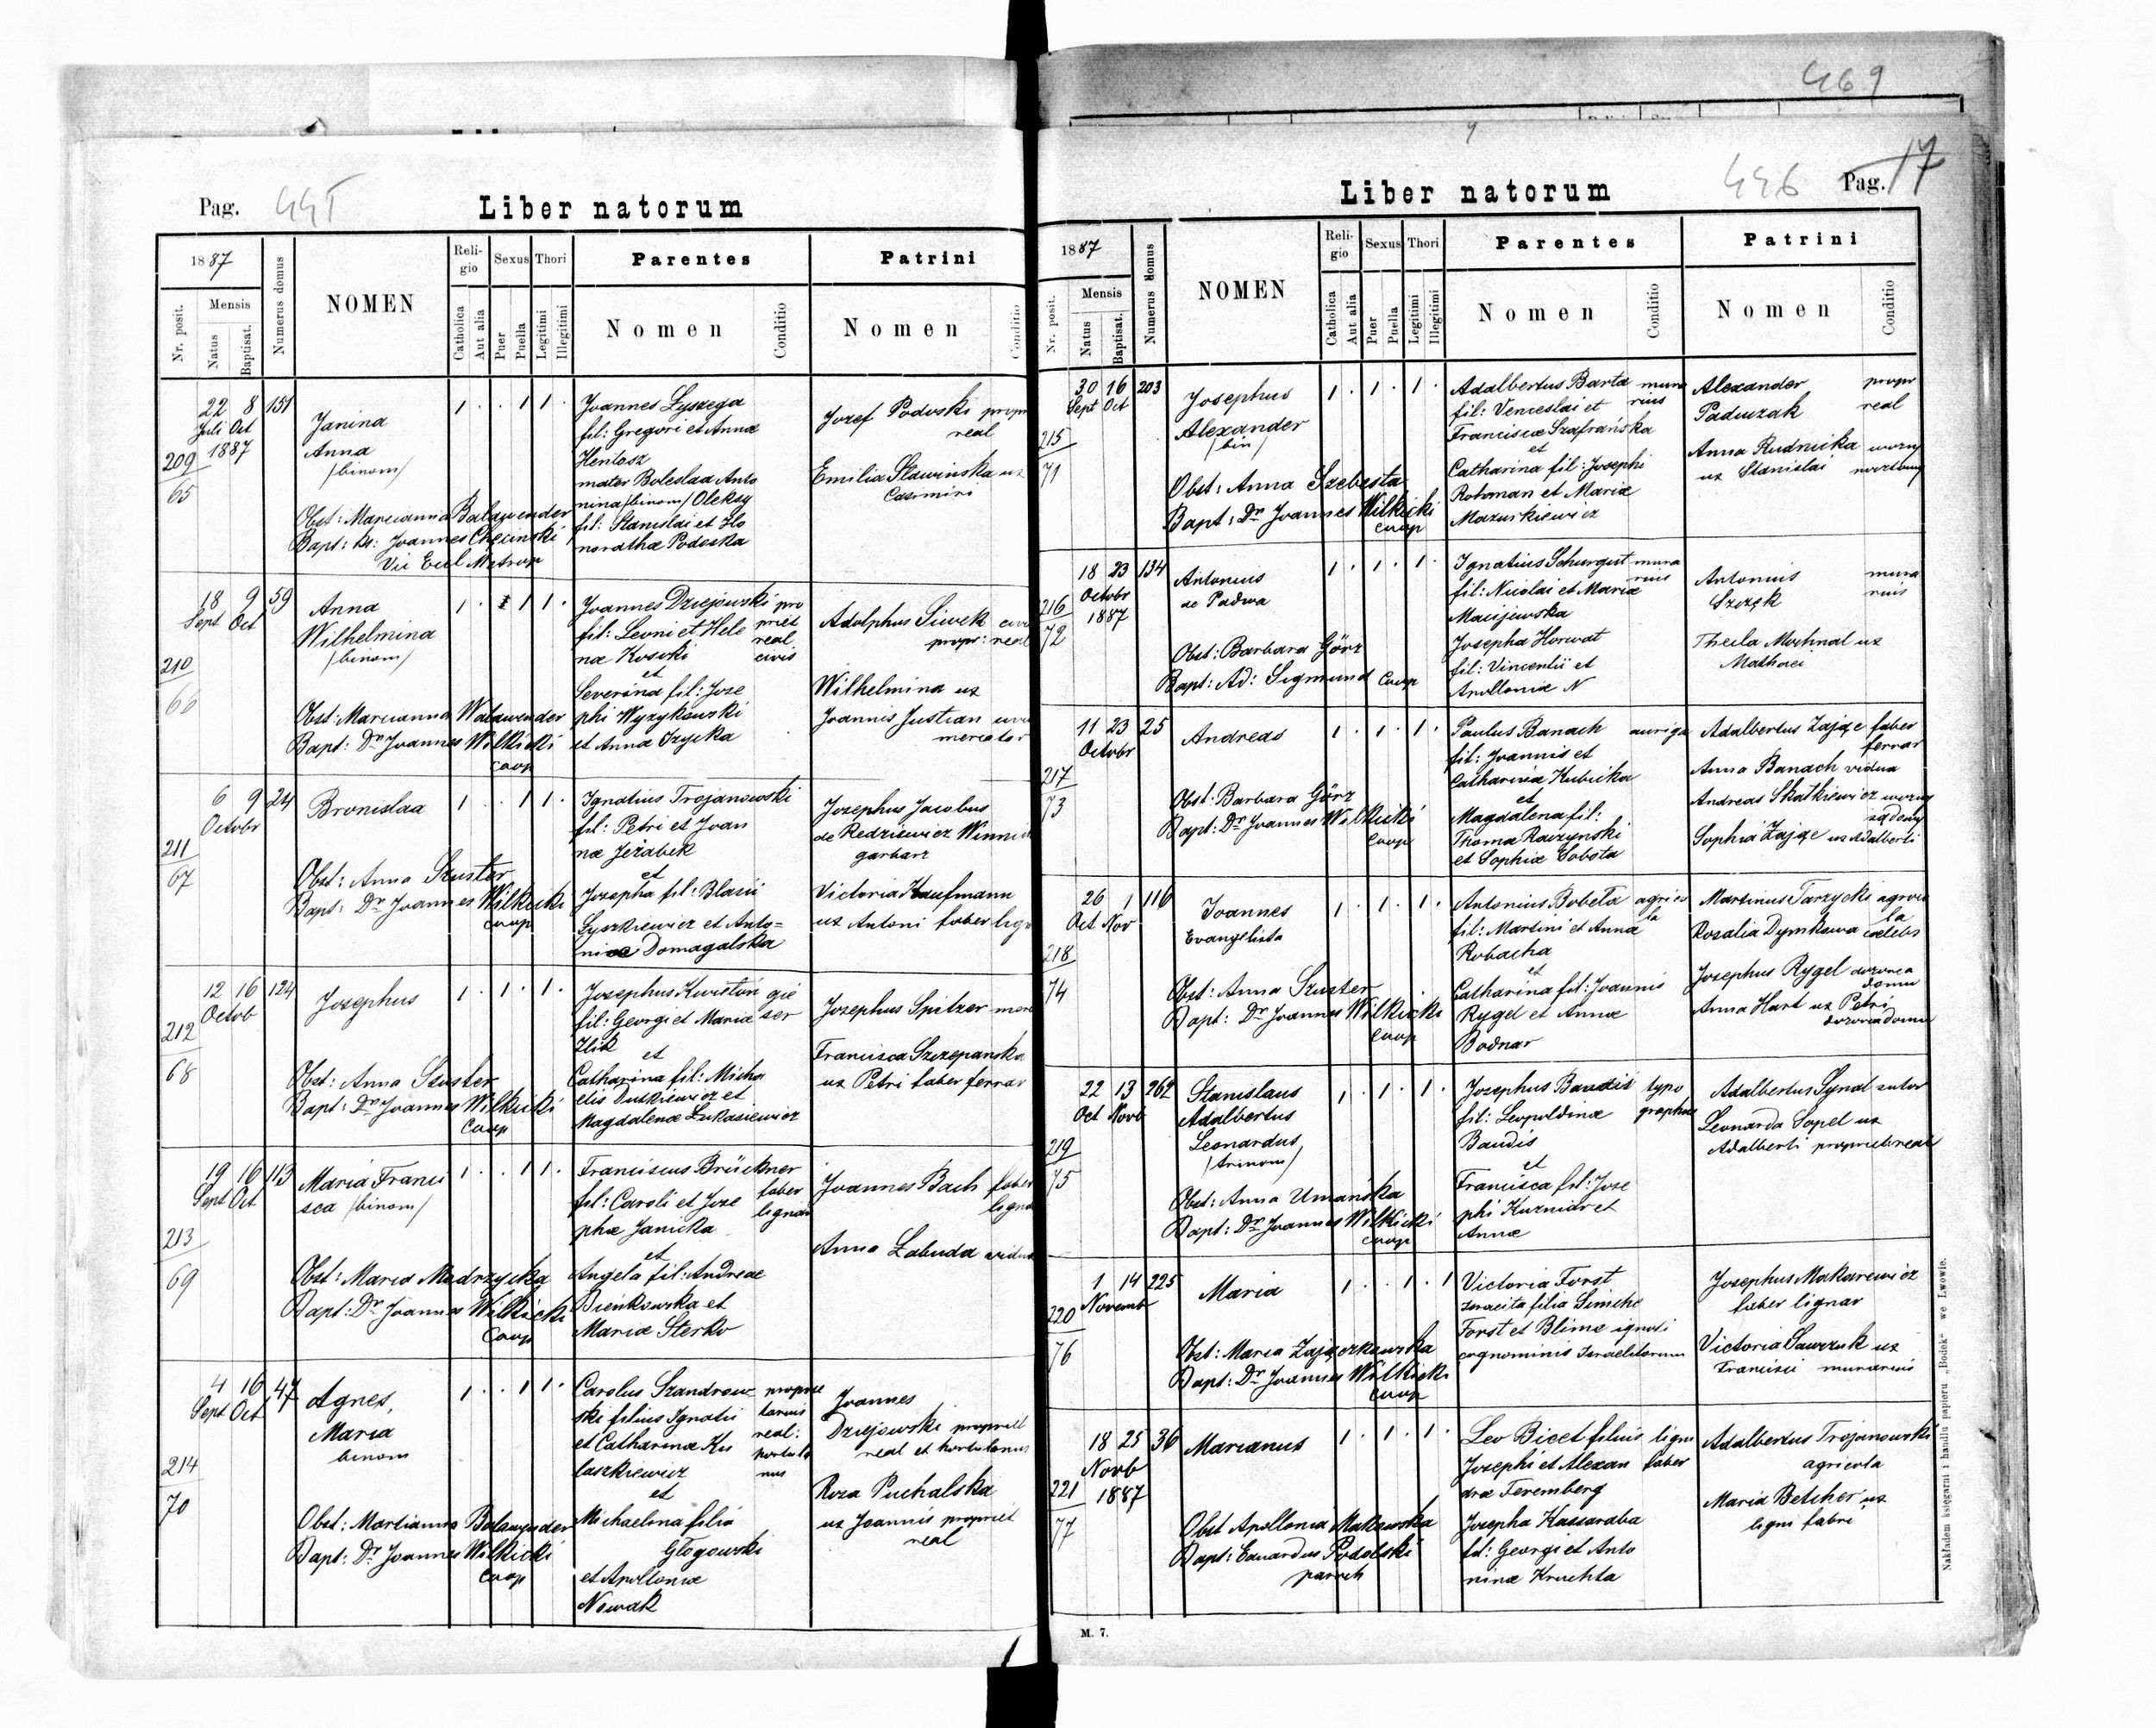 469
Pag. 445
Liber natorum
1887
Nr. posit.
Mensis
Natus
Baptisat.
Numerus domus
NOMEN
Religio
Catholica
Aut alia
Sexus
Puer
Puella
Thori
Legitimi
Illegitimi
Parentes
Nomen
Conditio
Patrini
Nomen
Conditio
209
65
22 8 151
Juli Oct
1887
Janina
Anna
/binom/
Obst: Marcianna Balawender
Bapt: Dr: Joannes Chęcinski
Vic Eccl Metrop
1 . . 1 1 .
Joannes Lyszega
fil: Gregori et Annæ
Hentosz
mater Boleslaa Anto
nina /binom/ Oleksy
fil: Stanislai et Ho
norathæ Podoska
Jozef Podoski propr
real
Emilia Slawinska ux
Casimiri
210
66
18 9 59
Sept Oct
Anna
Wilhelmina
/binom/
Obst: Marcianna Walawender
Bapt: Dr Joannes Wilkicki
coop
1 . 1 1 .
Joannes Dziejowski pro
fil: Leoni et Hele priet
næ Kosoki real
et civis
Severina fil: Jose
phi Wyzykowski
et Anna Izycka
Adolphus Siwek civi
propr: real
Wilhelmina ux
Joannis Justian
mercator
211
67
6 9 24
Octobr
Bronislaa
Obst: Anna Szuster
Bapt: Dr Joannes Wilkicki
coop
1 . . 1 1 .
Ignatius Trojanowski
fil: Petri et Joan
næ Jeżabek
et
Josepha fil: Blasii
Lyszkiewicz et Anto=
niæ Domagalska
Josephus Jacobus
de Redziewicz
garbarz
Victoria Kaufmann
ux Antoni faber lign
212
68
12 16 124
Octob
Josephus
Obst: Anna Szuster
Bapt: Dr Joannes Wilkicki
Coop
1 . 1 . 1 .
Josephus Kwieton gie
fil: Georgi et Mariæ ser
Ilik
et
Catharina fil: Micha
elis Dutkiewicz et
Magdalenæ Lukasiewicz
Josephus Spitzer merc
Francisca Szczepanska
ux Petri faber ferrar
213
69
19 16 113
Sept Oct
Maria Franci
sca /binom/
Obst: Maria Madrzycka
Bapt: Dr Joannes Wilkicki
Coop
1 . . 1 1 .
Franciscus Brückner
fil: Caroli et Jose faber
phæ Janicka lignar
et
Angela fil: Andreæ
Bienkowska et
Mariæ Sterko
Joannes Bach faber
lignar
Anna Labuda vidua
214
70
4 16 47
Sept Oct
Agnes,
Maria
binom
Obst: Martianna Balawender
Bapt: Dr Joannes Wilkicki
Coop
1 . . 1 1 .
Carolus Szandrow proprie
ski filius Ignatii tarius
et Catharinæ Ku real:
laszkiewicz hortula
et nus
Michaelina filia
Głogowski
et Apolloniæ
Nowak
Joannes
Dziejowski propriet
real et hortulanus
Roza Puchalska
ux Joannis propriet
real
446 Pag. 17
Liber natorum
1887
Nr. posit.
Mensis
Natus
Baptisat.
Numerus domus
NOMEN
Religio
Catholica
Aut alia
Sexus
Puer
Puella
Thori
Legitimi
Illegitimi
Parentes
Nomen
Conditio
Patrini
Nomen
Conditio
215
71
30 16 203
Sept Oct
Josephus
Alexander
/bin/
Obst: Anna Szebesta
Bapt: Dr Joannes Wilkicki
coop
1 . 1 . 1 .
Adalbertus Barta mura
fil: Venceslai et rius
Franciscæ Szafrańska
et
Catharina fil: Josephi
Rotoman et Mariæ
Mazurkiewicz
Alexander propr
Paduczak real
Anna Rudnicka wozny
ux Stanislai
216
72
18 23 134
Octobr
1887
Antonius
de Padwa
Obst: Barbara Görz
Bapt: Ad: Sigmund Coop
1 . 1 . 1 .
Ignatius Schurgut mura
fil: Nicolai et Mariæ rius
Macijewska
Josepha Horwat
fil: Vincentii et
Apolloniæ N
Antonius mura
Szczęk rius
Thecla Mochnal ux
Mathaei
217
73
11 23 25
Octobr
Andreas
Obst: Barbara Görz
Bapt: Dr Joannes Wilkicki
Coop
1 . 1 . 1 .
Paulus Banach auriga
fil: Joannis et
Catharinæ Kubicka
et
Magdalena fil:
Thomæ Raczynski
et Sophiæ Sobota
Adalbertus Zając faber
ferrar
Anna Banach vidua
Andreas Skatkiewicz wozny
sądowy
Sophia Zając ux Adalberti
218
74
26 1 116
Oct Nov
Joannes
Evangelista
Obst: Anna Szuster
Bapt: Dr Joannes Wilkicki
Coop
1 . 1 . 1 .
Antonius Bobeta agrico
fil: Martini et Annæ la
Robacha
et
Catharina fil: Joannis
Rygel et Annæ
Bodnar
Martinus Tarzycki agrico
la
Rosalia Dymkowa cælebs
Josephus Rygel dozorca
domu
Anna Hart ux Petri
dozorca domu
219
75
22 13 262
Oct Novb
Stanislaus
Adalbertus
Leonardus,
/trinom/
Obst: Anna Umańska
Bapt: Dr Joannes Wilkicki
Coop
1 . 1 . 1 .
Josephus Baudis typo
fil: Leopoldinæ graphus
Baudis
et
Francisca fil: Jose
phi Kuzniar et
Annæ
Adalbertus Synal sutor
Leonarda Sopel ux
Adalberti propriet real
220
76
1 14 225
Novemb
Maria
Obst: Maria Zajączkowska
Bapt: Dr Joannes Wilkicki
Coop
1 . . 1 . 1
Victoria Forst
Izraelita filia Simche
Forst et Blime ignoti
cognominis Israelitorum
Josephus Makarewicz
faber lignar
Victoria Sawczuk ux
Francisci murarius
221
77
18 25 36
Novb
1887
Marianus
Obst Apollonia Makowska
Bapt: Eduardus Podolski
paroch
1 . 1 . 1 .
Leo Bicet filius ligni
Josephi et Alexan faber
dræ Feremberg
Josepha Kassaraba
fil: Georgi et Anto
ninæ Kruchta
Adalbertus Trojanowski
agricola
Maria Betcher ux
ligni fabri
M. 7.
Nakładem księgarni i handlu papieru „Bodek“ we Lwowie.